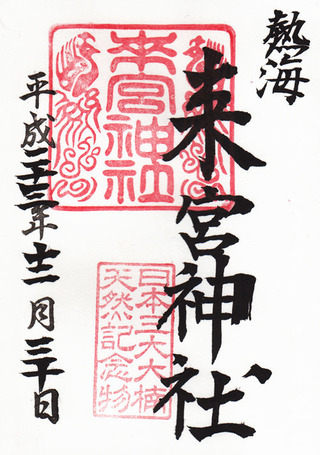 熱海
来宮神社
来宮神社
日本三大大楠
天然記念物
平成二十三年十二月三十日